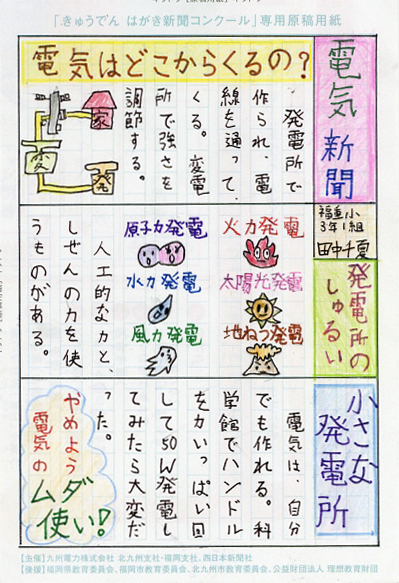 「きゅうでん はがき新聞コンクール」専用原稿用紙
電気新聞
電気はどこからくるの？
発電所で
作られ、電
線を通って、
くる。変電
所で強さを
調節する。
家
変
発
福重小
3年1組
田中千夏
発電所の
しゅるい
火力発電
太陽光発電
地ねつ発電
原子力発電
水力発電
風力発電
人工的な力と、
しぜんの力を使
うものがある。
小さな
発電所
電気は、自分
でも作れる。科
学館でハンドル
を力いっぱい回
して50W発電し
てみたら大変だ
った。
やめよう
電気の
ムダ
使い！
【主催】九州電力株式会社 北九州支社・福岡支社、西日本新聞社
【後援】福岡県教育委員会、福岡市教育委員会、北九州市教育委員会、公益財団法人 理想教育財団